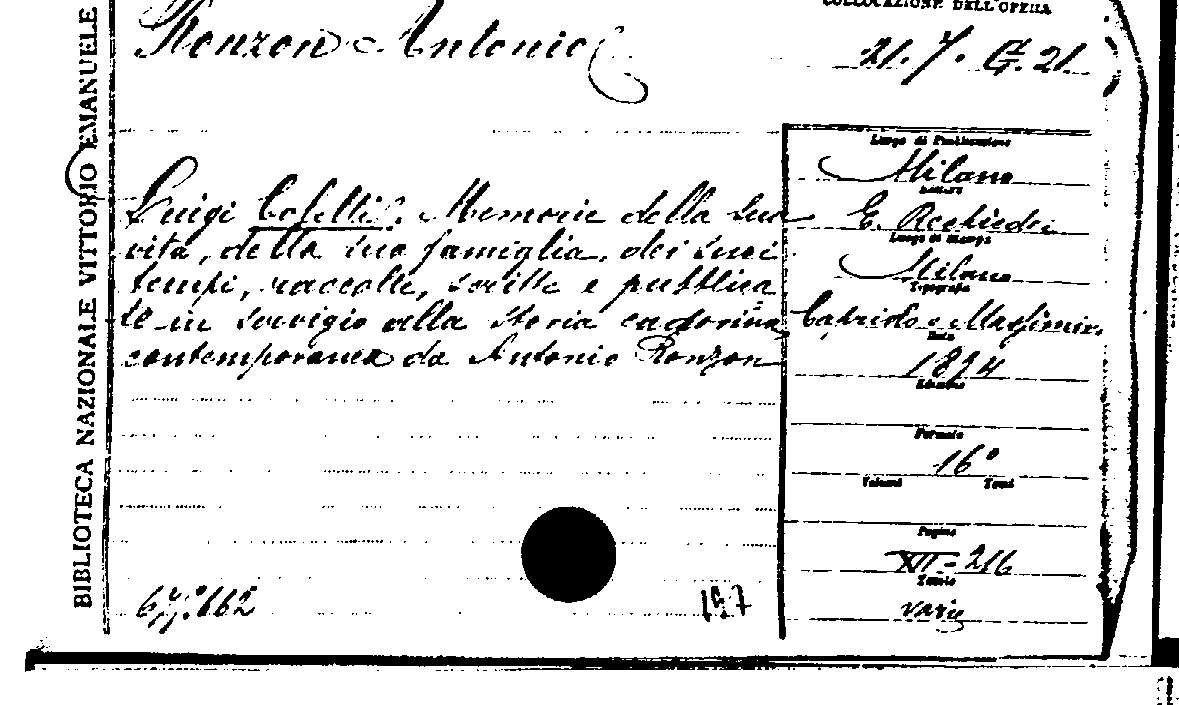 COLLOCAZIONE DELL'OPERA
Ronzon Antonio
21. 7. G. 21.
BIBLIOTECA NAZIONALE VITTORIO EMANUELE
Luigi Coletti. Memorie della sua
vita, della sua famiglia, dei suoi
tempi, raccolte, scritte e pubblica
te in servigio alla storia cadorina
contemporanea da Antonio Ronzon
Luogo di Pubblicazione
Milano
Editore
E. Rechiedei
Luogo di stampa
Milano
Tipografia
Capriolo e Massimino
Data
1894
Edizione
Formato
16°
Volumi Tomi
Pagine
XII - 216
Tavole
varie
197